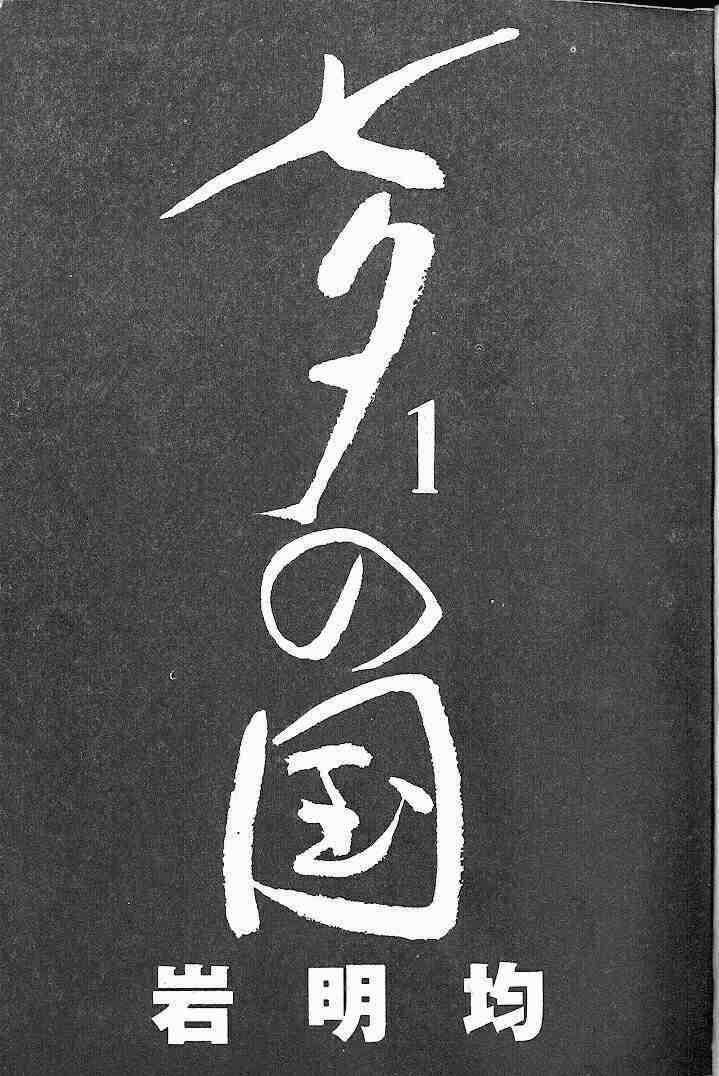 七夕の国
1
岩明均